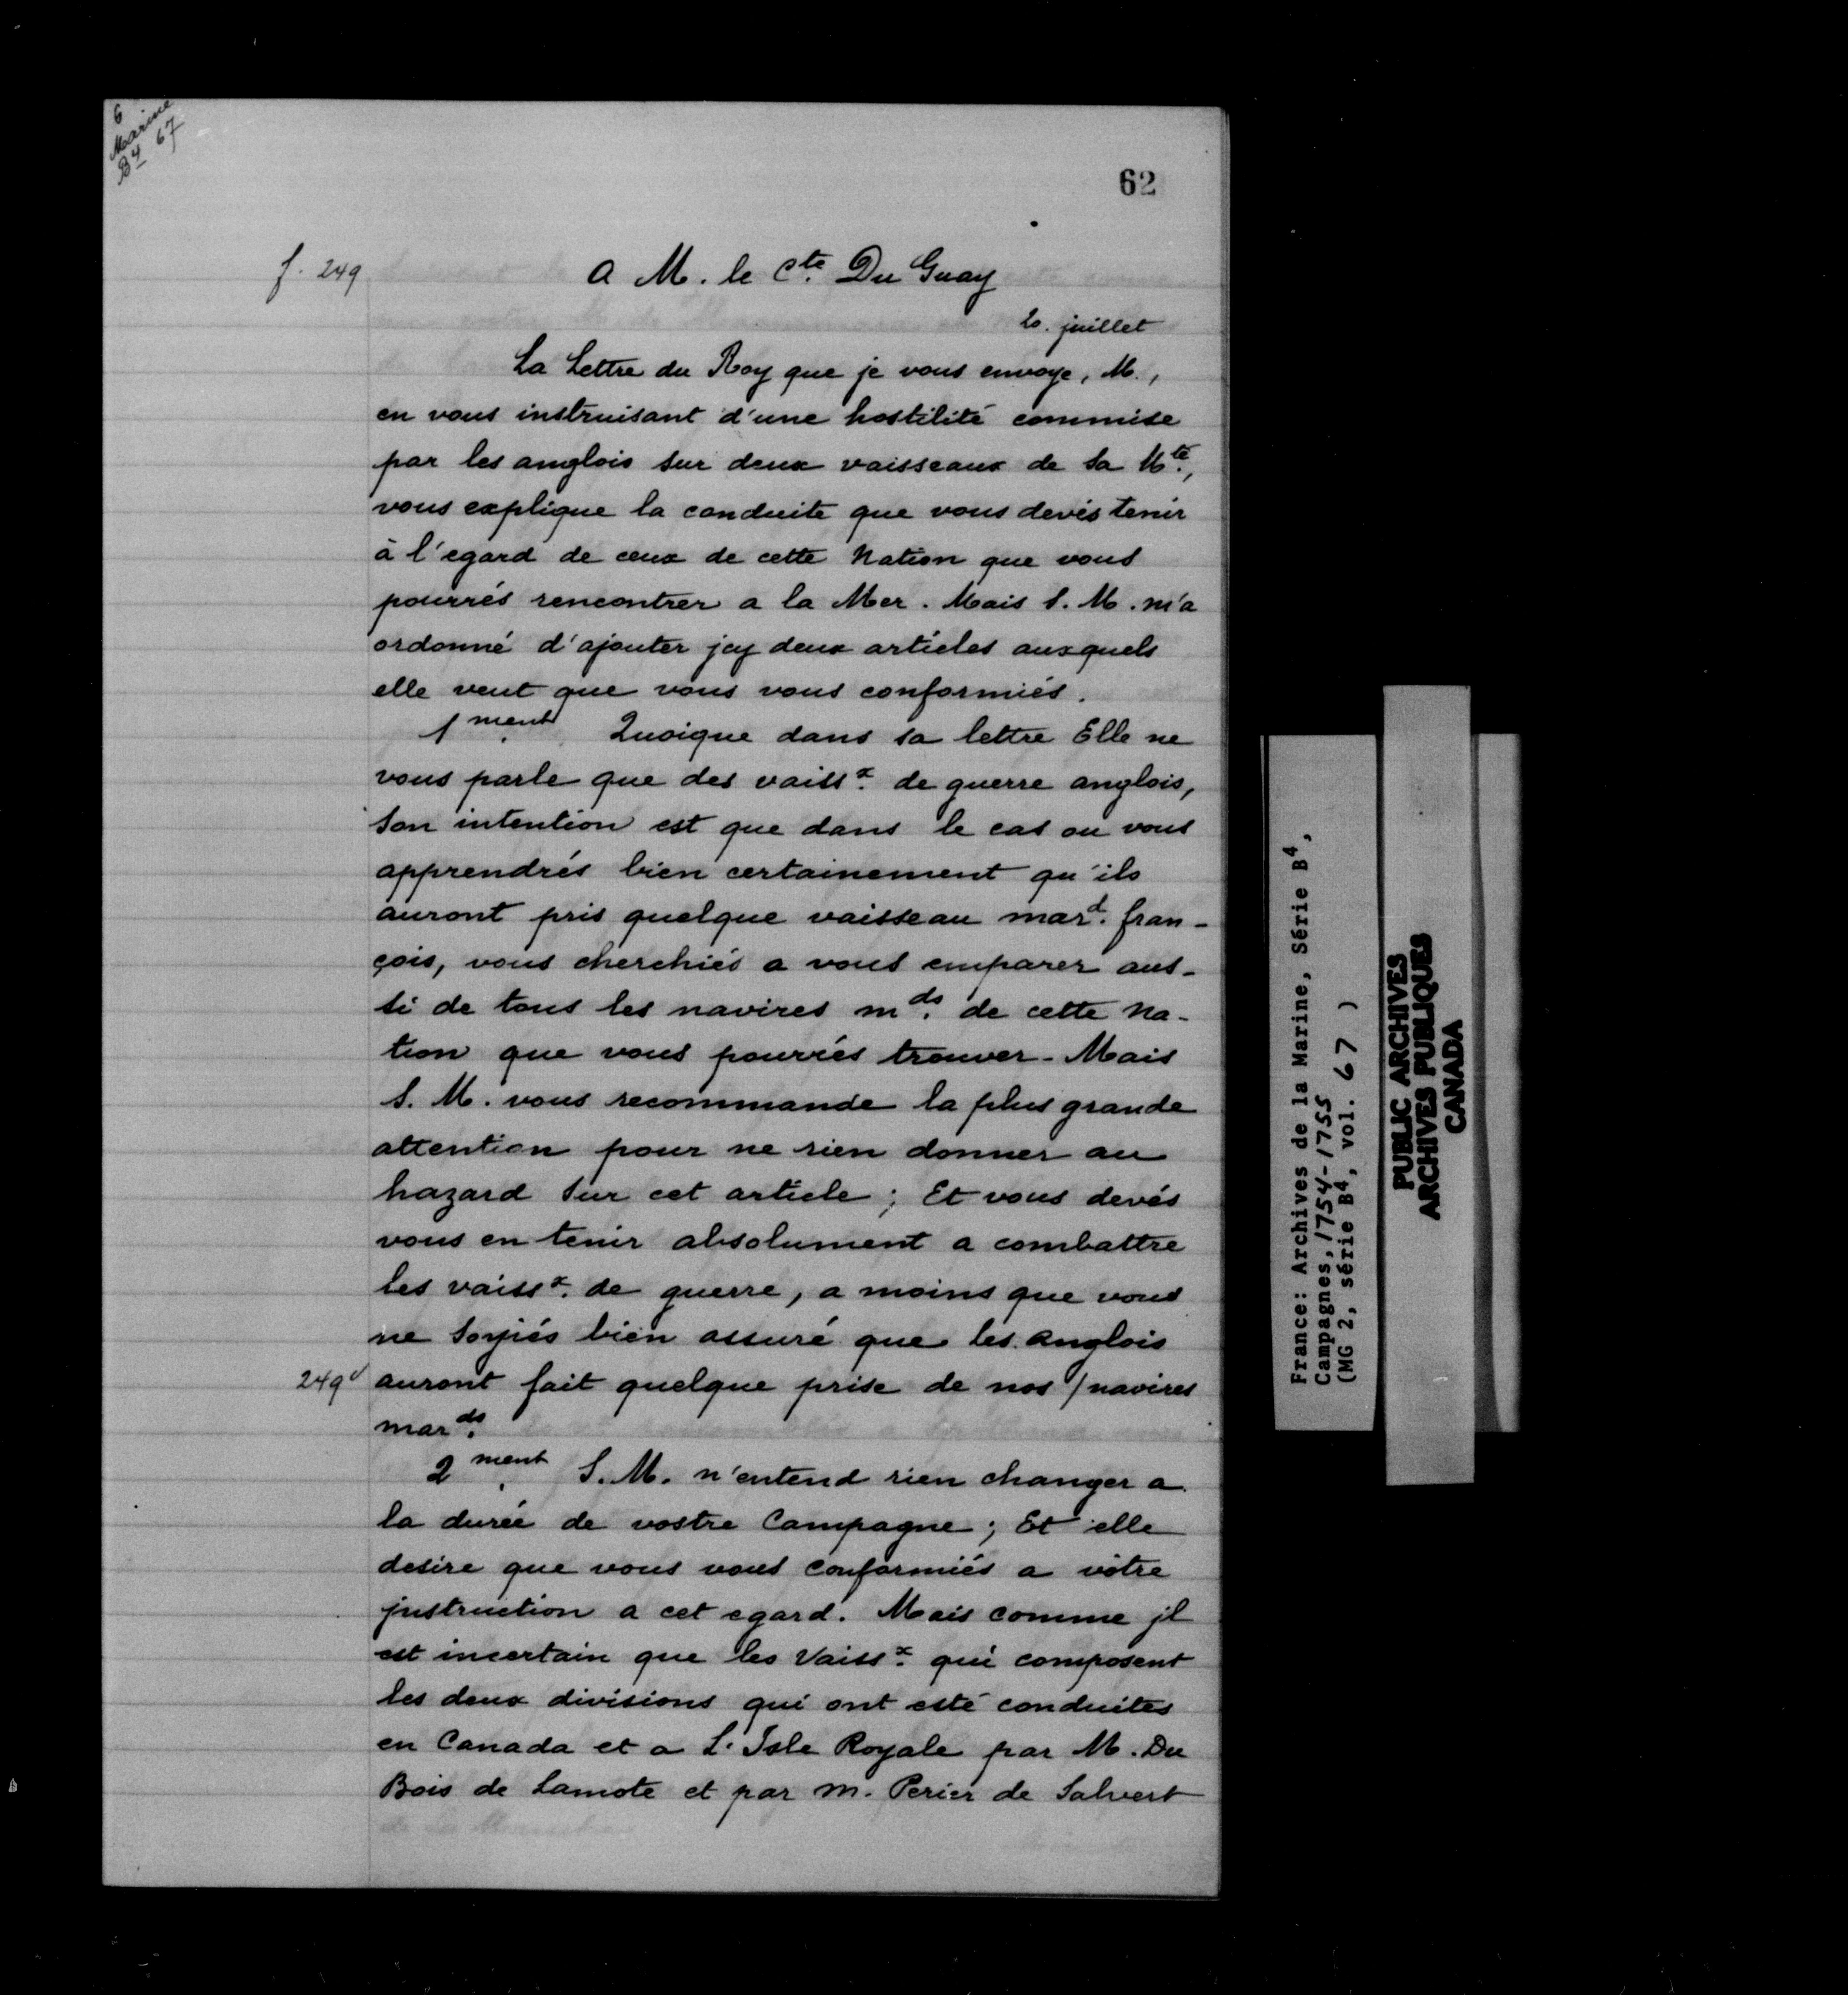 6
Marine
B4 67
62
f. 249
A M. le Cte. Du Guay
20. juillet
La Lettre du Roy que je vous envoye, M.,
en vous instruisant d'une hostilité commise
par les anglois sur deux vaisseaux de Sa Mté.,
vous explique la conduite que vous devés tenir
à l'egard de ceux de cette Nation que vous
pourrés rencontrer a la Mer. Mais S. M. m'a
ordonné d'ajouter jcy deux articles auxquels
elle veut que vous vous conformiés.
1ment. Quoique dans sa lettre Elle ne
vous parle que des vaissx. de guerre anglois,
Son intention est que dans le cas ou vous
apprendrés bien certainement qu'ils
auront pris quelque vaisseau mard. fran-
çois, vous cherchiés a vous emparer aus-
si de tous les navires mds. de cette Na-
tion que vous pourrés trouver. Mais
S. M. vous recommande la plus grande
attention pour ne rien donner au
hazard sur cet article; Et vous devés
vous en tenir absolument a combattre
les vaissx. de guerre, a moins que vous
ne soyiés bien assuré que les anglois
249v auront fait quelque prise de nos / navires
mards.
2ment. S. M. n'entend rien changer a
la durée de vostre Campagne; Et elle
desire que vous vous conformiés a vôtre
jnstruction a cet egard. Mais comme jl
est incertain que les Vaissx. qui composent
les deux divisions qui ont esté conduites
en Canada et a L'Isle Royale par M. Du
Bois de Lamote et par M. Perier de Salvert
France: Archives de la Marine, Série B4,
Campagnes, 1754-1755
(MG 2, série B4, vol. 67 )
PUBLIC ARCHIVES
ARCHIVES PUBLIQUES
CANADA